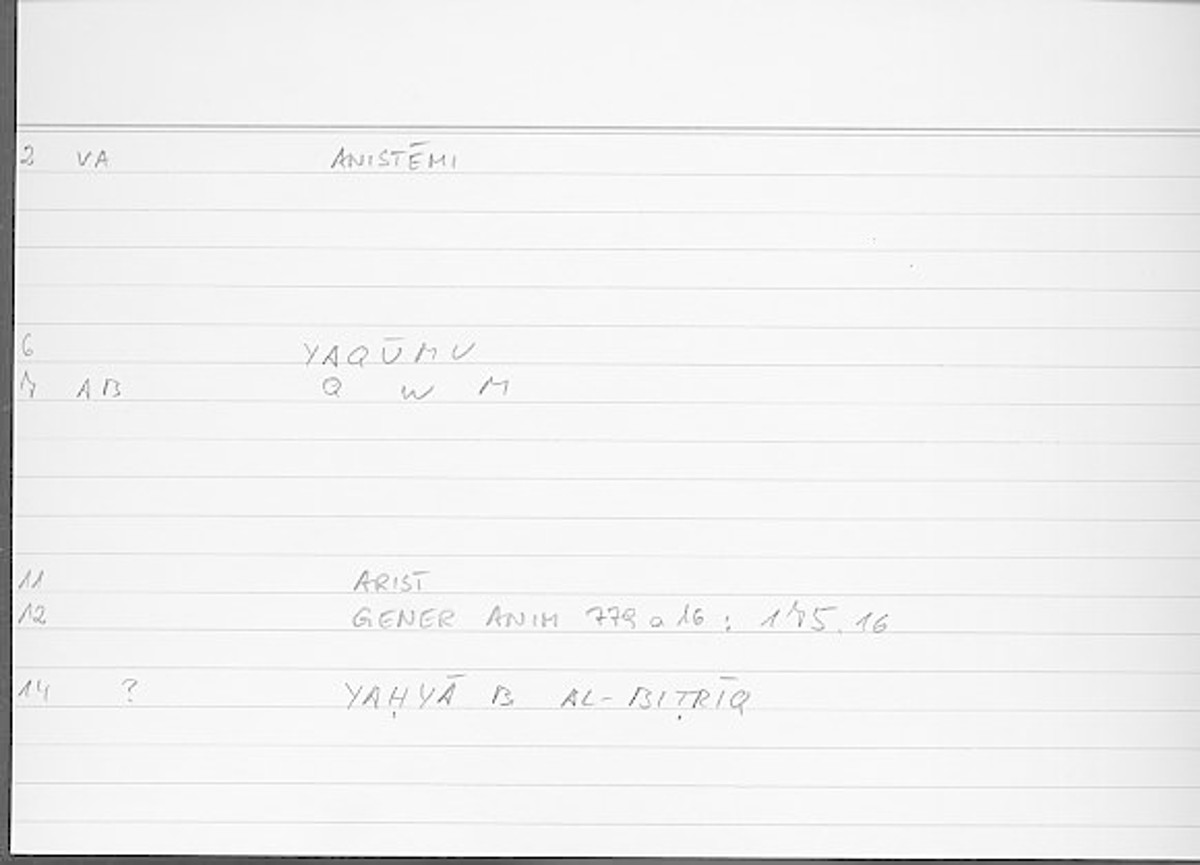 2 VA ANISTĒMI
6 YAQŪMU
7 AB Q W M
11 ARIST
12 GENER ANIM 779 a 16 : 175.16
14 ? YAḤYĀ B AL-BIṬRĪQ